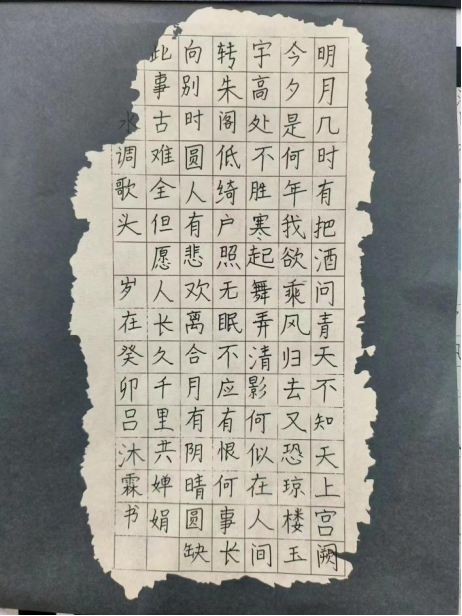 明月几时有把酒问青天不知天上宫阙
今夕是何年我欲乘风归去又恐琼楼玉
宇高处不胜寒起舞弄清影何似在人间
转朱阁低绮户照无眠不应有恨何事长
向别时圆人有悲欢离合月有阴晴圆缺
此事古难全但愿人长久千里共婵娟
水调歌头 岁在癸卯吕沐霖书